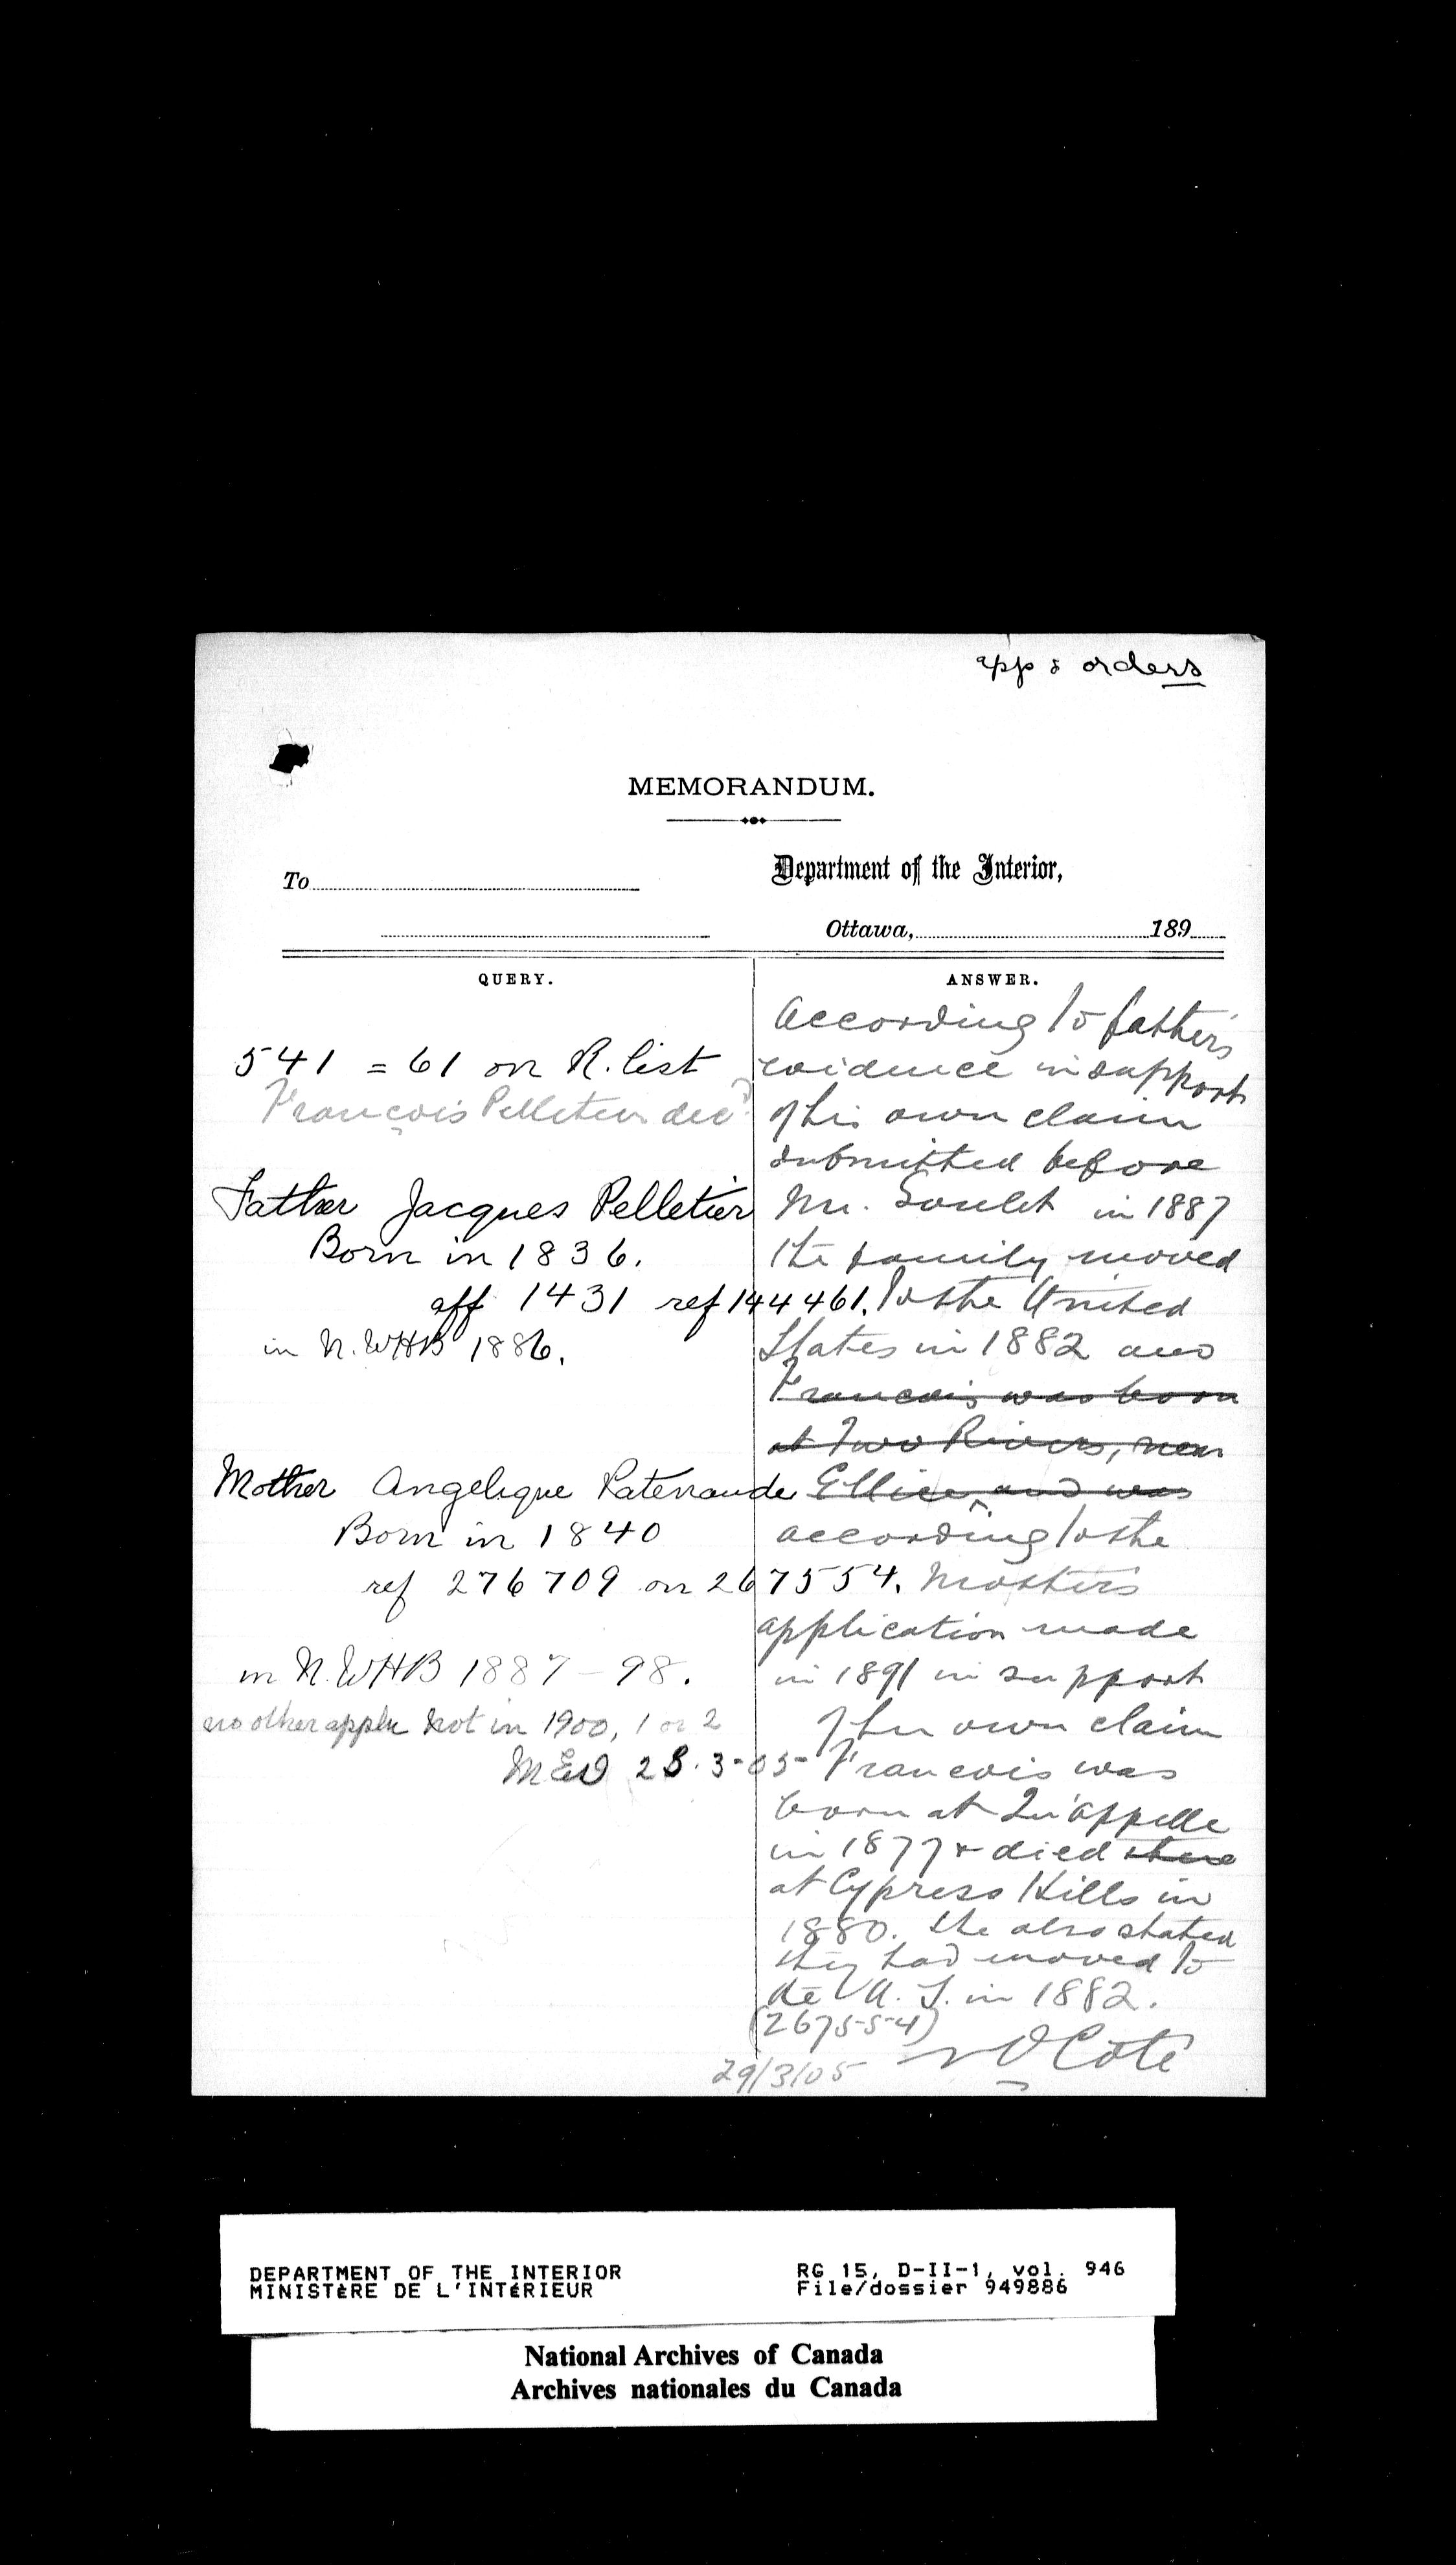 app & orders
MEMORANDUM.
To
Department of the Interior,
Ottawa, 189
QUERY.
541 = 61 on R. list
François Pelletier decd.
Father Jacques Pelletier
Born in 1836.
aff 1431 ref 144461.
in N.WHB 1886.
Mother Angelique Patenaude
Born in 1840
ref 276709 on 267554.
in N.WHB 1887-98.
no other appln not in 1900, 1 or 2
28.3-05-
ANSWER.
According to father's
evidence in support
of his own claim
submitted before
Mr. Goulet in 1887
the family moved
to the United
States in 1882 and
Francois was born
at Two Rivers, near
Ellice and was
according to the
mother's
application made
in 1891 in support
of her own claim
Francois was
born at Qu'Appelle
in 1877 & died there
at Cypress Hills in
1880. She also stated
they had moved to
the U. S. in 1882.
(267554)
Côté
29/3/05
DEPARTMENT OF THE INTERIOR
MINISTÈRE DE L'INTÉRIEUR
RG 15, D-II-1, vol. 946
File/dossier 949886
National Archives of Canada
Archives nationales du Canada